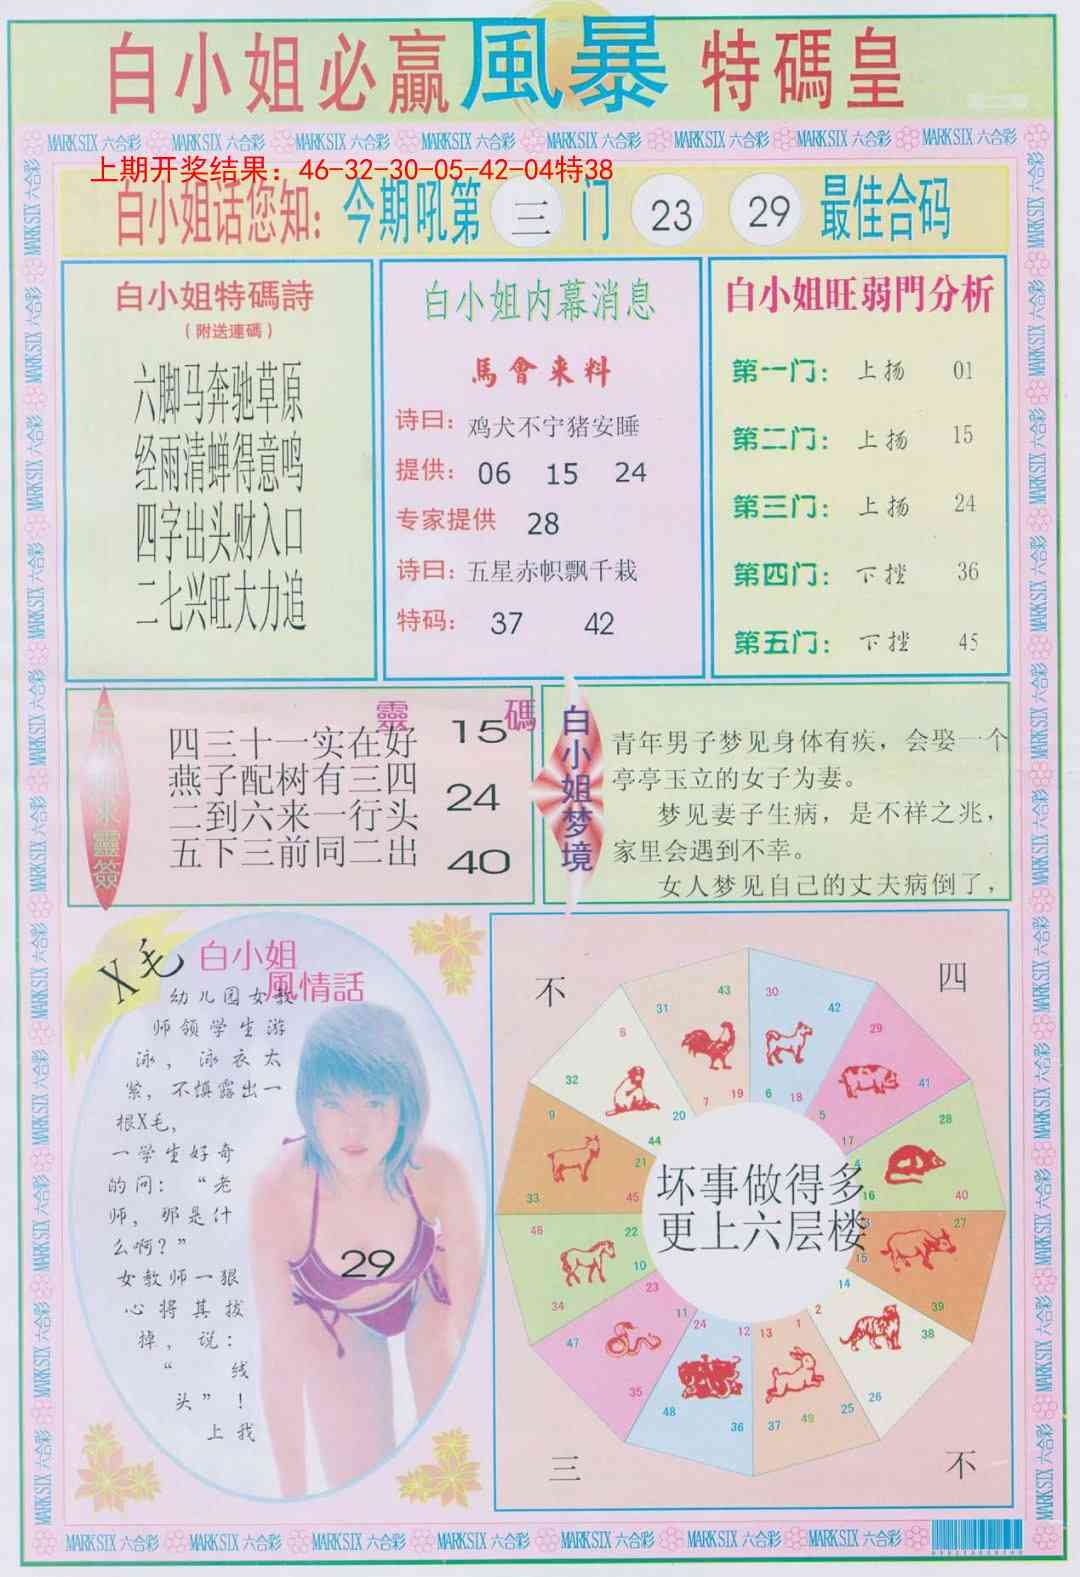 白小姐必贏風暴特碼皇
MARK SIX 六合彩 MARK SIX 六合彩 MARK SIX 六合彩 MARK SIX 六合彩 MARK SIX 六合彩 MARK SIX 六合彩 MARK SIX 六合彩 MARK SIX 六合彩
上期开奖结果：46-32-30-05-42-04特38
白小姐话您知: 今期吼第 三 门 23 29 最佳合码
白小姐特碼詩
(附送連碼)
六脚马奔驰草原
经雨清蝉得意鸣
四字出头财入口
二七兴旺大力追
白小姐内幕消息
馬會来料
诗曰: 鸡犬不宁猪安睡
提供: 06 15 24
专家提供 28
诗曰: 五星赤帜飘千栽
特码: 37 42
白小姐旺弱門分析
第一门: 上扬 01
第二门: 上扬 15
第三门: 上扬 24
第四门: 下挫 36
第五门: 下挫 45
靈碼
四三十一实在好
燕子配树有三四
二到六来一行头
五下三前同二出
15
24
40
白小姐梦境
青年男子梦见身体有疾，会娶一个
亭亭玉立的女子为妻。
梦见妻子生病，是不祥之兆，
家里会遇到不幸。
女人梦见自己的丈夫病倒了，
X毛
白小姐
風情話
幼儿园女教
师领学生游
泳，泳衣太
紧，不慎露出一
根X毛，
一学生好奇
的问：“老
师，那是什
么啊？”
女教师一狠
心将其拔
掉，说：
“线
头”！
上我
29
不
四
三
不
坏事做得多
更上六层楼
31 43 7 19
30 42 6 18
29 41 5 17
28 40 4 16
27 39 3 15
38 26 14 2
37 49 25 13 1
48 36 24 12
47 35 23 11
46 34 22 10
9 33 21 45
8 32 20 44
MARK SIX 六合彩 MARK SIX 六合彩 MARK SIX 六合彩 MARK SIX 六合彩 MARK SIX 六合彩 MARK SIX 六合彩 MARK SIX 六合彩